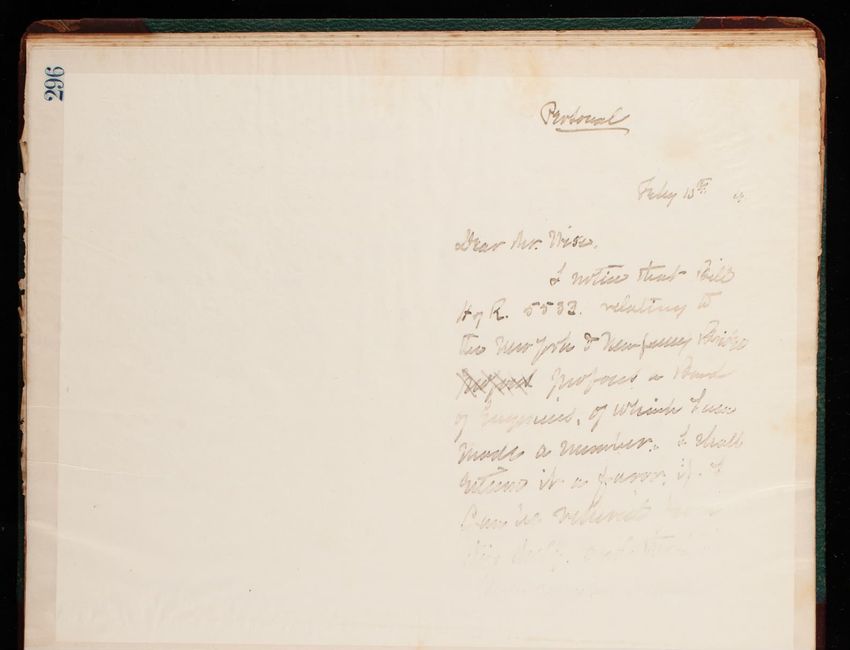 296
Personal
Feby 13th
Dear Mr. Wise.
I notice that Bill
H of R. 5532. relating to
the New York & New Jersey Bridge
proposes a Board
of Engineers, of which I am
made a member. I shall
esteem it a favor, if I
can be relieved